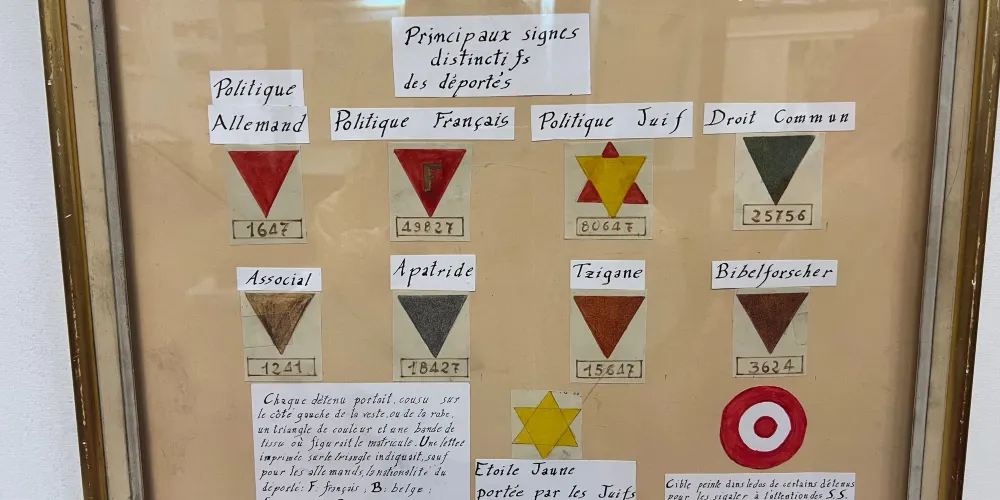 Principaux signes
distinctifs
des déportés
Politique
Allemand
Politique Français
Politique Juif
Droit Commun
1647
F
49827
80647
25756
Associal
Apatride
Tzigane
Bibelforscher
1241
18427
15647
3624
Chaque détenu portait, cousu sur
le côté gauche de la veste, ou de la robe,
un triangle de couleur et une bande de
tissu où figurait le matricule. Une lettre
imprimée sur le triangle indiquait, sauf
pour les allemands, la nationalité du
déporté: F: français; B: belge;
Etoile Jaune
portée par les Juifs
Cible peinte dans le dos de certains détenus
pour les signaler à l'attention des S.S.